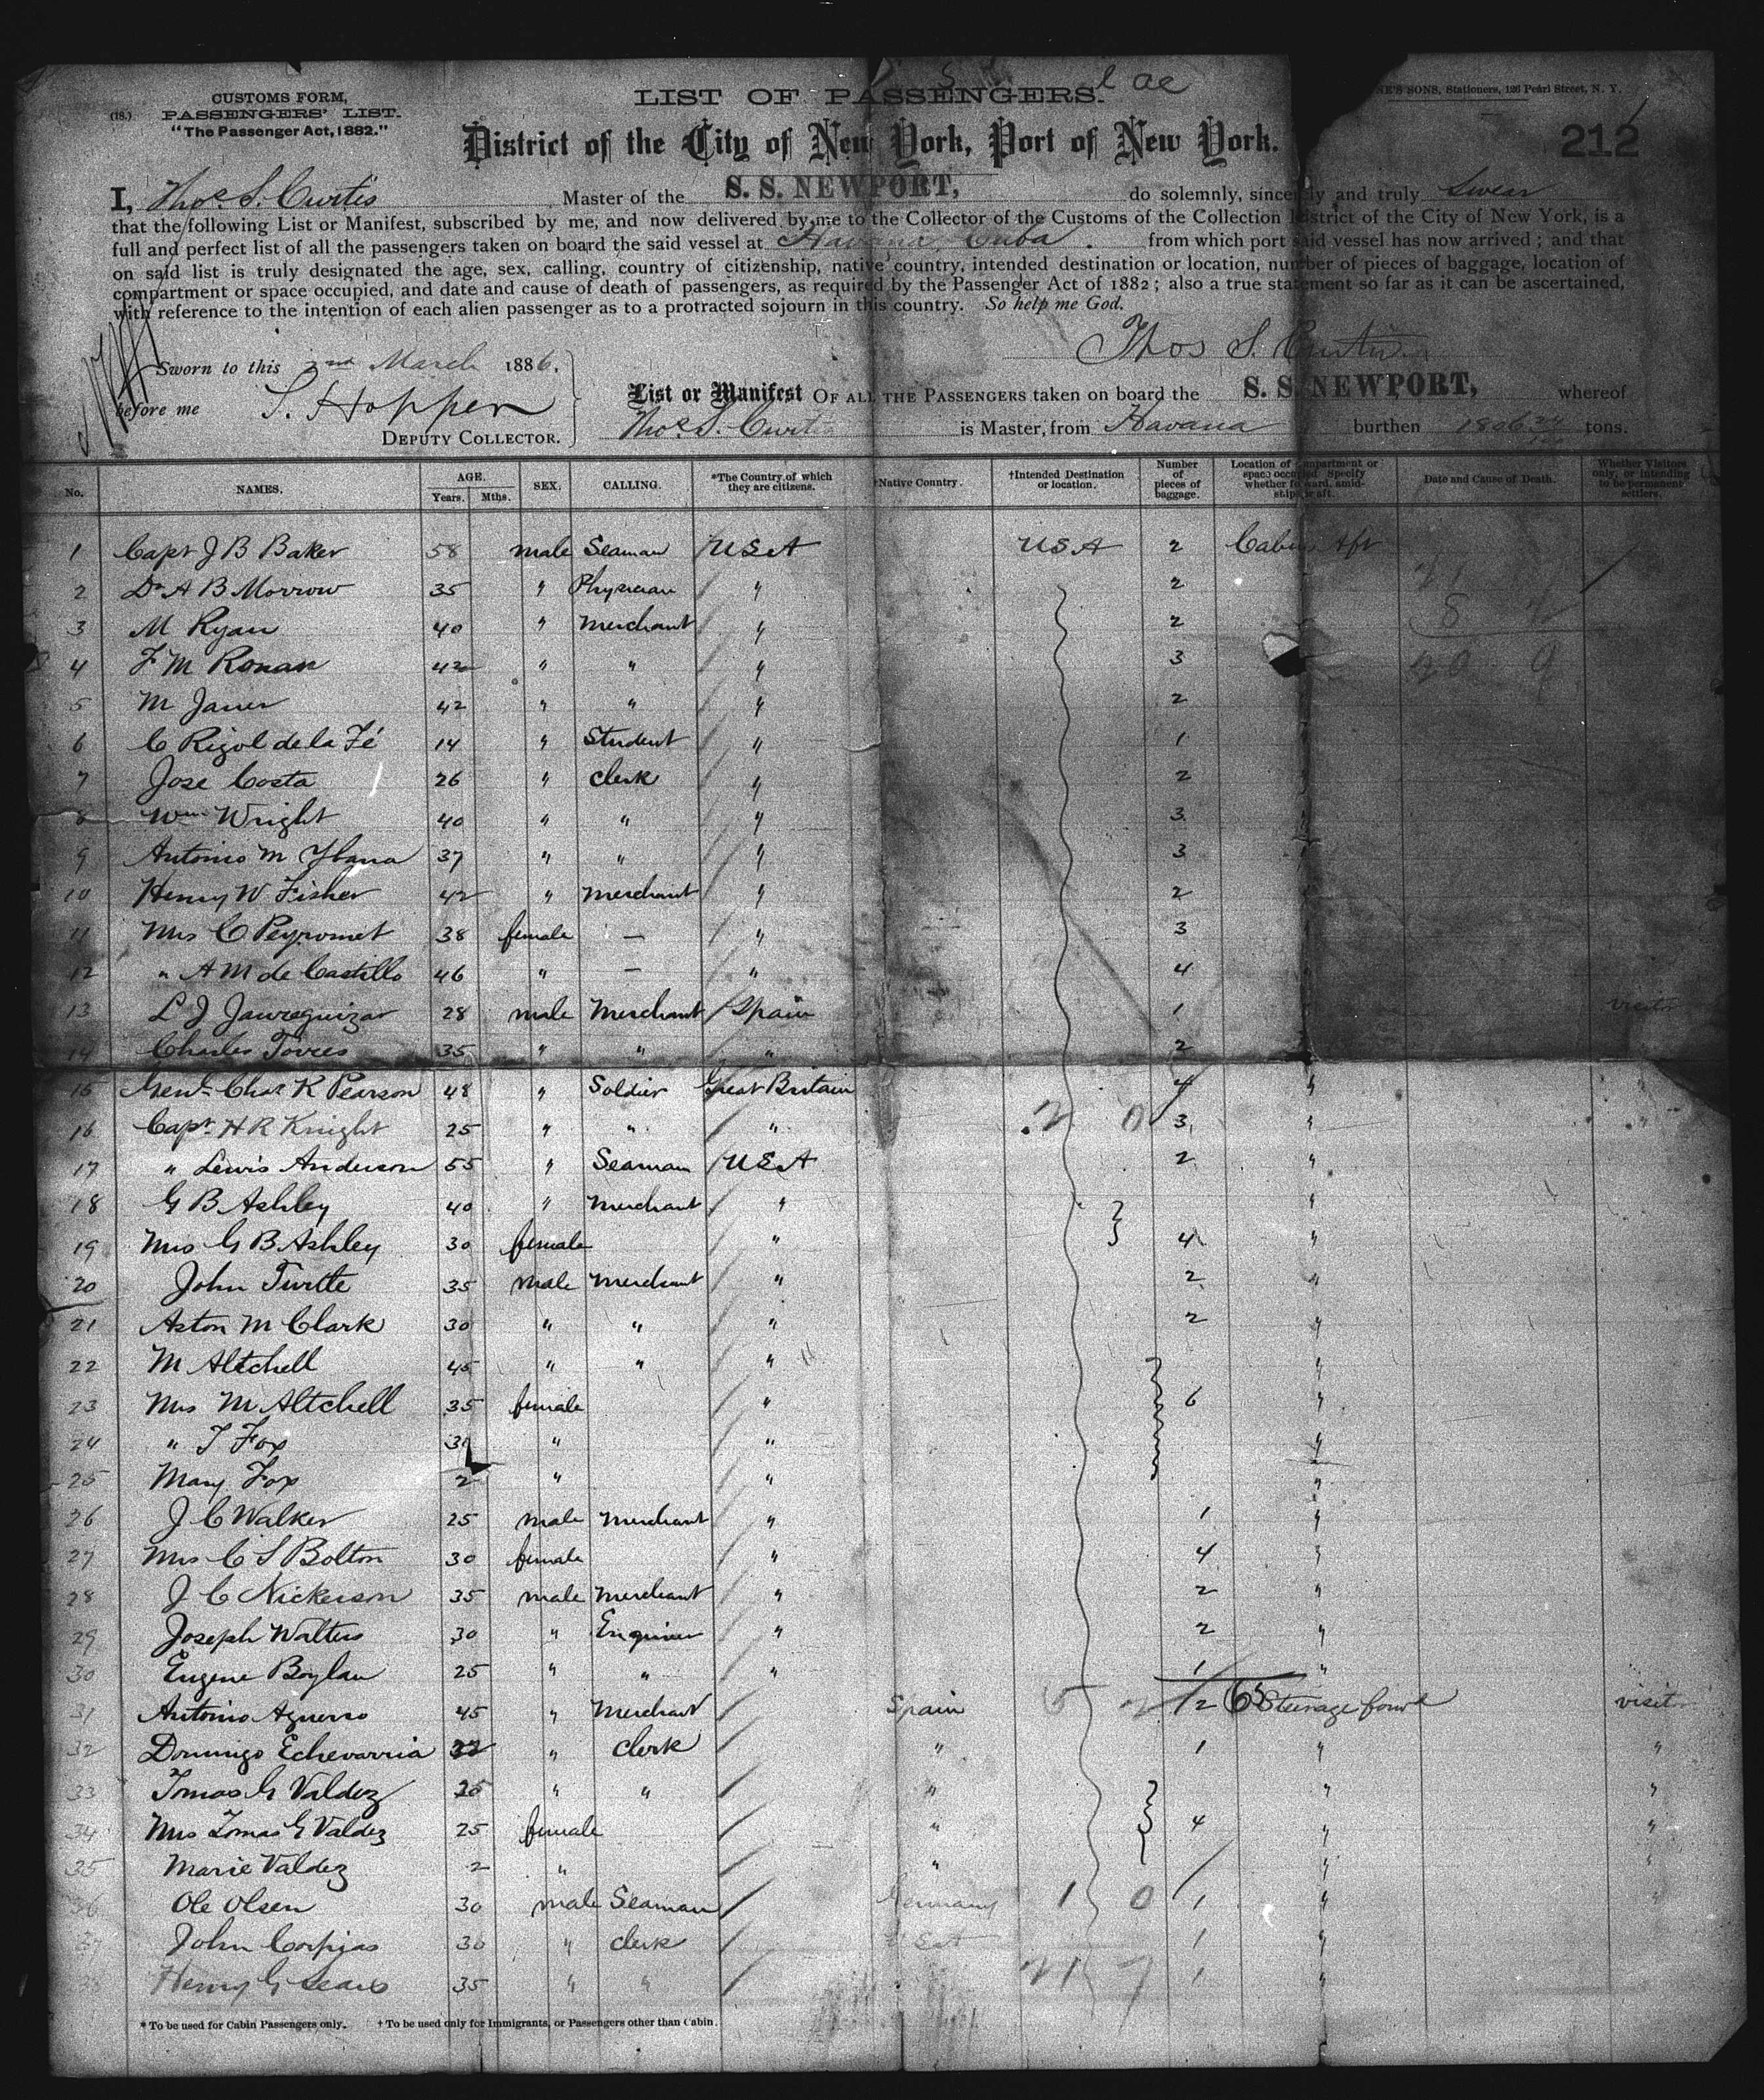 S l ae
CUSTOMS FORM,
(18.) PASSENGERS' LIST.
"The Passenger Act, 1882."
LIST OF PASSENGERS.
NE'S SONS, Stationers, 126 Pearl Street, N. Y.
District of the City of New York, Port of New York.
212
I, Thos. S. Curtis Master of the S. S. NEWPORT, do solemnly, sincerely and truly swear
that the following List or Manifest, subscribed by me, and now delivered by me to the Collector of the Customs of the Collection District of the City of New York, is a
full and perfect list of all the passengers taken on board the said vessel at Havana, Cuba. from which port said vessel has now arrived; and that
on said list is truly designated the age, sex, calling, country of citizenship, native country, intended destination or location, number of pieces of baggage, location of
compartment or space occupied, and date and cause of death of passengers, as required by the Passenger Act of 1882; also a true statement so far as it can be ascertained,
with reference to the intention of each alien passenger as to a protracted sojourn in this country. So help me God.
Thos S. Curtis
Sworn to this 2nd March 1886.
before me S. Hopper
DEPUTY COLLECTOR.
List or Manifest OF ALL THE PASSENGERS taken on board the S. S. NEWPORT, whereof
Thos. S. Curtis is Master, from Havana burthen 1806 24/100 tons.
No. NAMES. AGE. Years. Mths. SEX. CALLING. *The Country of which they are citizens. †Native Country. †Intended Destination or location. Number of pieces of baggage. Location of compartment or space occupied. Specify whether forward, amidships or aft. Date and Cause of Death. Whether Visitors only, or intending to be permanent settlers.
1 Capt J B Baker 58 male Seaman USA USA 2 Cabin Aft
2 Dr A B Morrow 35 " Physician " 2
3 M Ryan 40 " Merchant " 2
4 F M Ronan 42 " " " 3
5 M Janer 42 " " " 2
6 C Rigol de la Fé 14 " Student " 1
7 Jose Costa 26 " Clerk " 2
8 Wm Wright 40 " " " 3
9 Antonio M Ybana 37 " " " 3
10 Henry W Fisher 42 " Merchant " 2
11 Mrs C Peyromet 38 female — " 3
12 " A M de Castillo 46 " — " 4
13 L J Jaureguizar 28 male Merchant Spain 1 visitor
14 Charles Torres 35 " " " 2
15 Genl. Chas R Pearson 48 " Soldier Great Britain 4 " "
16 Capt. H R Knight 25 " " " 2 0 3 " "
17 " Lewis Anderson 55 " Seaman USA 2 "
18 G B Ashley 40 " Merchant " "
19 Mrs G B Ashley 30 female " 4 "
20 John Turtle 35 male Merchant " 2 "
21 Aston M Clark 30 " " " 2 "
22 M Altchell 45 " " " "
23 Mrs M Altchell 35 female " 6 "
24 " T Fox 31 " " "
25 Mary Fox 2 " " "
26 J C Walker 25 male Merchant " 1 "
27 Mrs C S Bolton 30 female " 4 "
28 J C Nickerson 35 male Merchant " 2 "
29 Joseph Walters 30 " Engineer " 2 "
30 Eugene Boylan 25 " " " 1 "
31 Antonio Aguerro 45 " Merchant Spain 2 65 Steerage forwd visitor
32 Domingo Echevarria 32 " Clerk " 1 " "
33 Tomas G Valdez 25 " " " " "
34 Mrs Tomas G Valdez 25 female " 4 " "
35 Marie Valdez 2 " " " "
36 Ole Olsen 30 male Seaman Germany 1 0 1 " "
37 John Corpias 30 " Clerk USA 1 "
38 Henry G Sears 35 " " 21 7 1 "
* To be used for Cabin Passengers only. † To be used only for Immigrants, or Passengers other than Cabin.